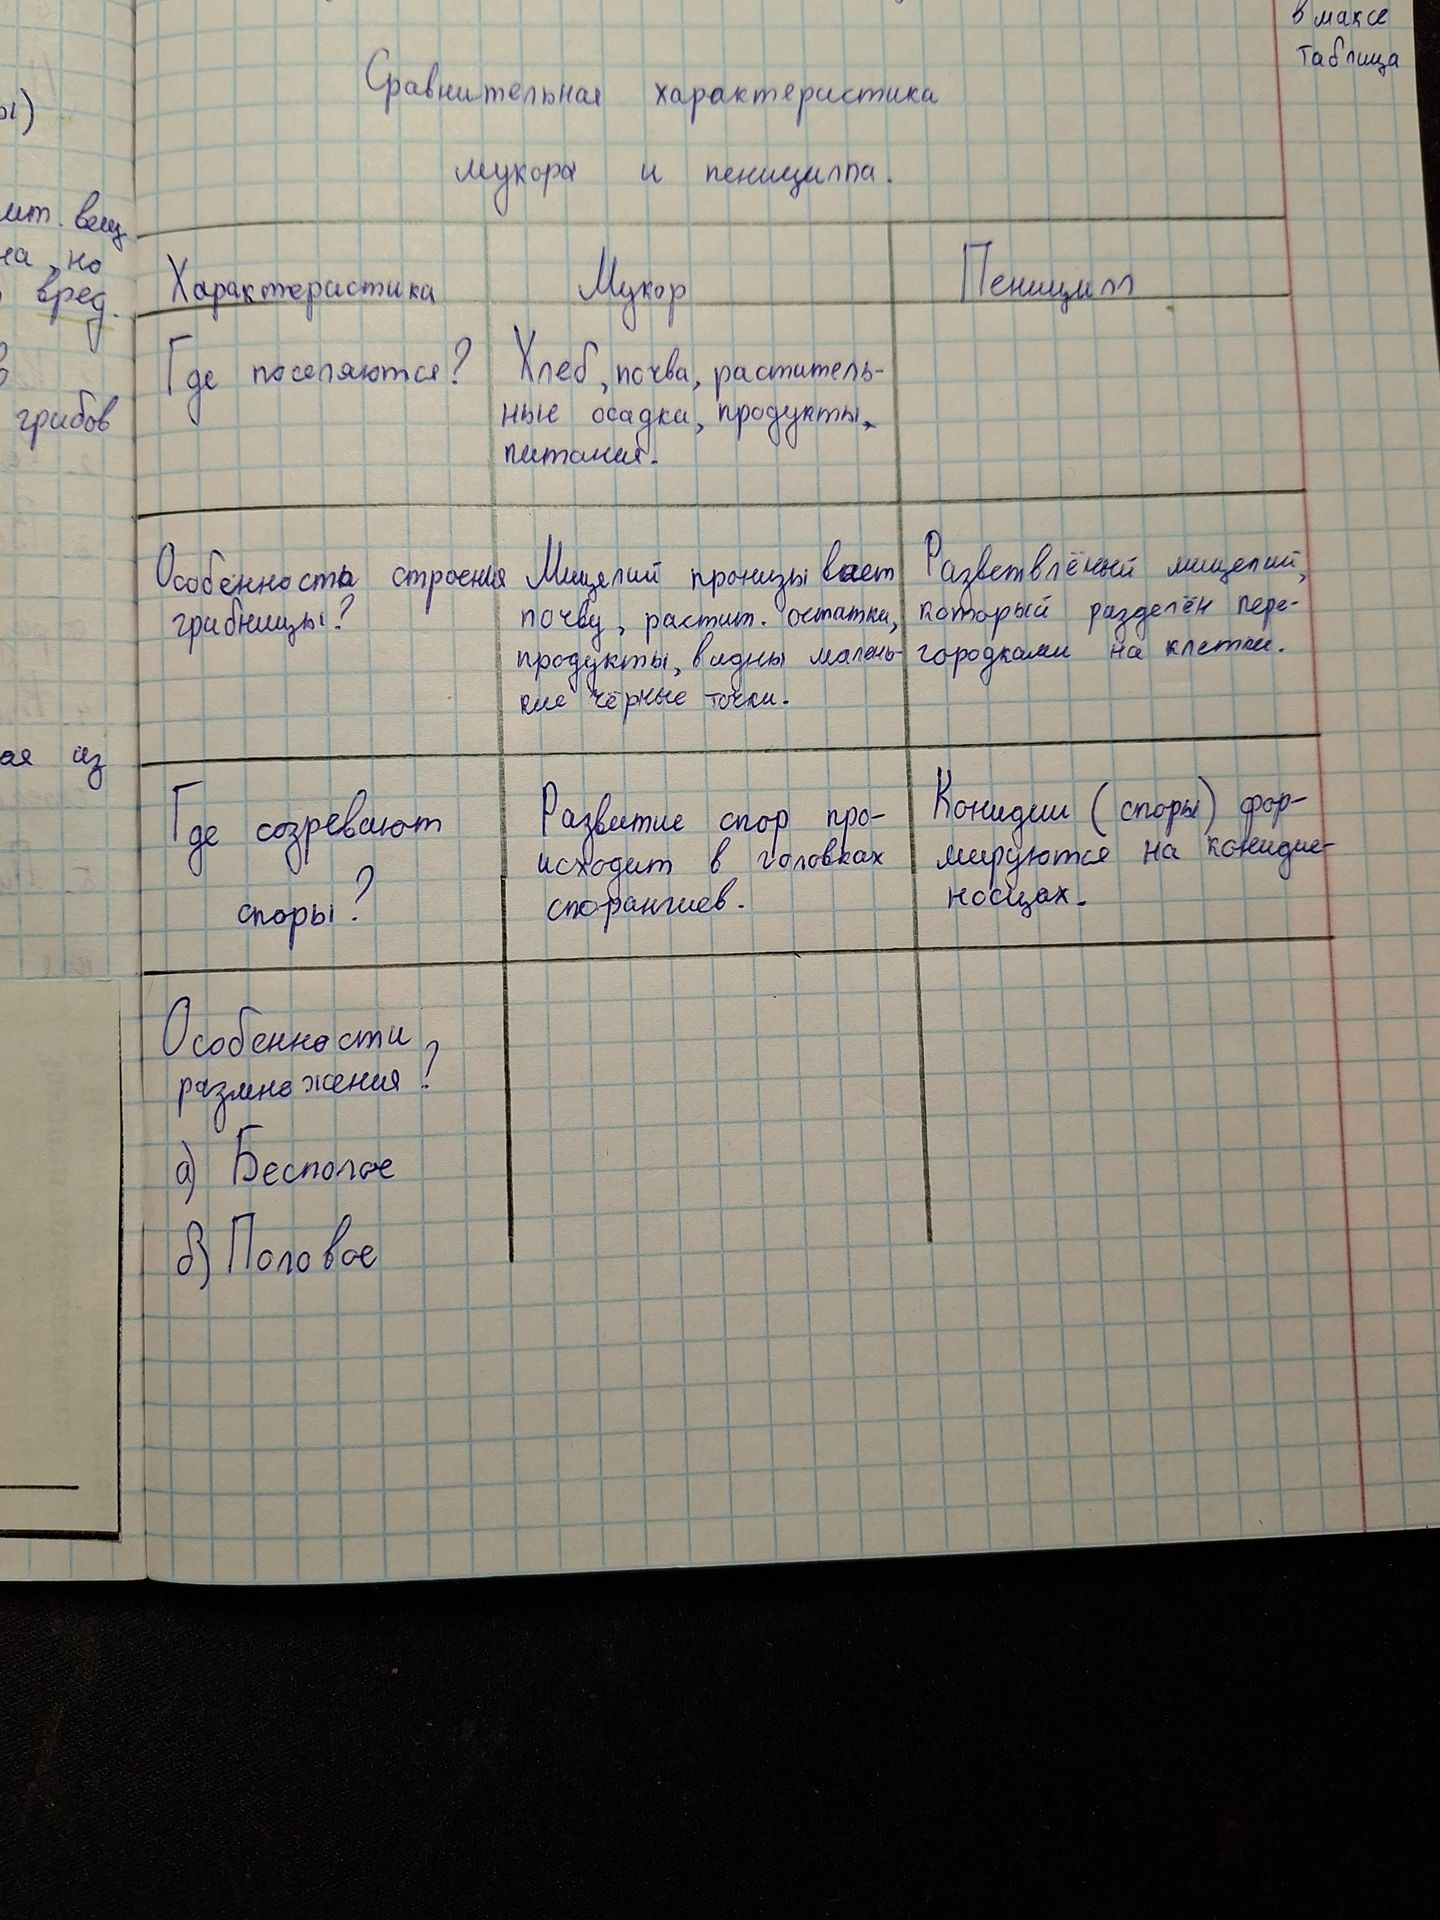 в максе
таблица
Сравнительная характеристика
мукора и пеницилла.
ы)
ит. вещ
на, но
вред.
в
грибов
ая из
Характеристика Мукор Пеницилл
Где поселяются? Хлеб, почва, раститель-
ные осадки, продукты,
питания.
Особенность строения
грибницы?
Мицелий пронизывает
почву, растит. остатки,
продукты, видны малень-
кие чёрные точки.
Разветвлёный мицелий,
который разделён пере-
городками на клетки.
Где созревают
споры?
Развитие спор про-
исходит в головках
спорангиев.
Конидии (споры) фор-
мируются на конидие-
носцах.
Особенности
размножения?
а) Бесполое
б) Половое